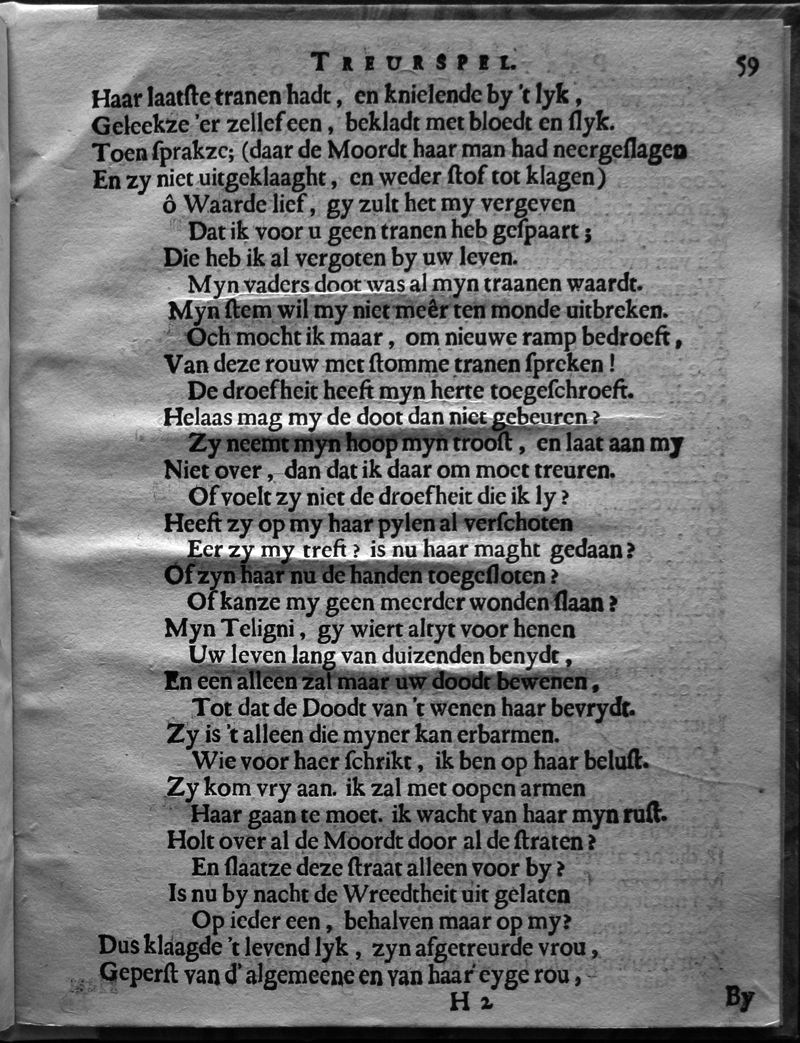 TREURSPEL. 59
Haar laatſte tranen hadt, en knielende by 't lyk,
Geleekze 'er zellef een, bekladt met bloedt en ſlyk.
Toen ſprakze; (daar de Moordt haar man had neergeſlagen
En zy niet uitgeklaaght, en weder ſtof tot klagen)
ô Waarde lief, gy zult het my vergeven
Dat ik voor u geen tranen heb geſpaart;
Die heb ik al vergoten by uw leven.
Myn vaders doot was al myn traanen waardt.
Myn ſtem wil my niet meêr ten monde uitbreken.
Och mocht ik maar, om nieuwe ramp bedroeft,
Van deze rouw met ſtomme tranen ſpreken!
De droefheit heeft myn herte toegeſchroeft.
Helaas mag my de doot dan niet gebeuren?
Zy neemt myn hoop myn trooſt, en laat aan my
Niet over, dan dat ik daar om moet treuren.
Of voelt zy niet de droefheit die ik ly?
Heeft zy op my haar pylen al verſchoten
Eer zy my treft? is nu haar maght gedaan?
Of zyn haar nu de handen toegeſloten?
Of kanze my geen meerder wonden ſlaan?
Myn Teligni, gy wiert altyt voor henen
Uw leven lang van duizenden benydt,
En een alleen zal maar uw doodt bewenen,
Tot dat de Doodt van 't wenen haar bevrydt.
Zy is 't alleen die myner kan erbarmen.
Wie voor haer ſchrikt, ik ben op haar beluſt.
Zy kom vry aan. ik zal met oopen armen
Haar gaan te moet. ik wacht van haar myn ruſt.
Holt over al de Moordt door al de ſtraten?
En ſlaatze deze ſtraat alleen voor by?
Is nu by nacht de Wreedtheit uit gelaten
Op ieder een, behalven maar op my?
Dus klaagde 't levend lyk, zyn afgetreurde vrou,
Geperſt van d' algemeene en van haar eyge rou,
H 2 By